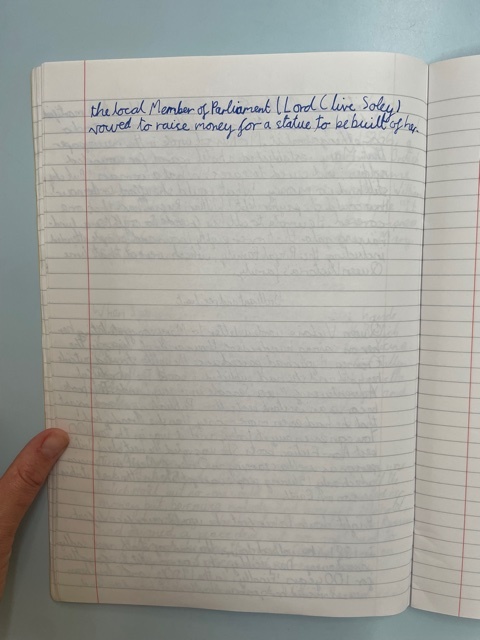 the local Member of Parliament (Lord Clive Soley)
vowed to raise money for a statue to be built of her.